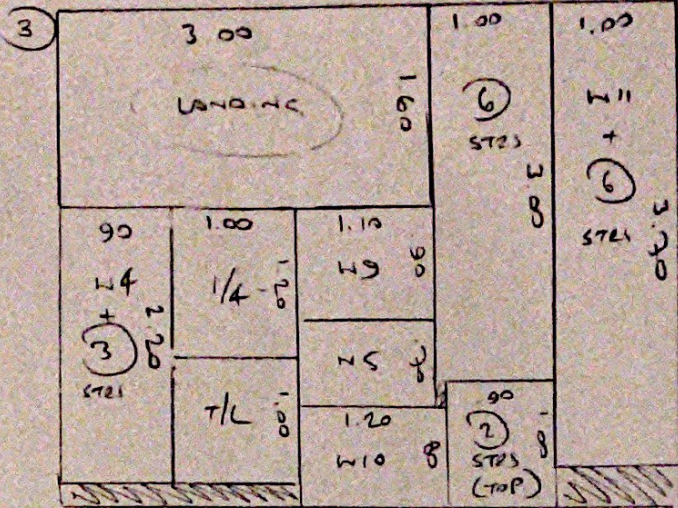 3
3.00
LANDING
1.60
1.00
6
STRS
3.00
1.00
W11
+
6
STRS
3.70
90
W4
+
3
STRS
2.20
1.00
1/4
1.20
T/L
1.00
1.10
W9
90
W5
1.20
W10
90
2
STRS
(TOP)